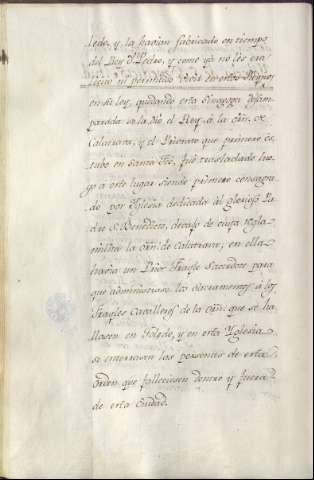 ledo, y la havian fabricado en tiempo
del Rey Dn Pedro, y como ya no les era
licito ni permitido vivir en estos Reynos
en su ley, quedando esta Sinagoga desam-
parada la dio el Rey à la orn. de
Calatrava, y el Priorato que primero es-
tubo en santa Fè, fuè transladado lue-
go a este lugar siendo primero consagra-
do por Iglesia dedicada al glorioso Pa-
dre Sn. Benedicto, devajo de cuya regla
milita la orn. de Calatrava, en ella
havia un Prior Frayle Sacerdote para
que administrase los sacramentos à los
Frayles Cavalleros de la orn. que se ha-
llasen en Toledo, y en esta Yglesia
se enterrasen las personas de esta
orden que falleciesen dentro y fuera
de esta ciudad.